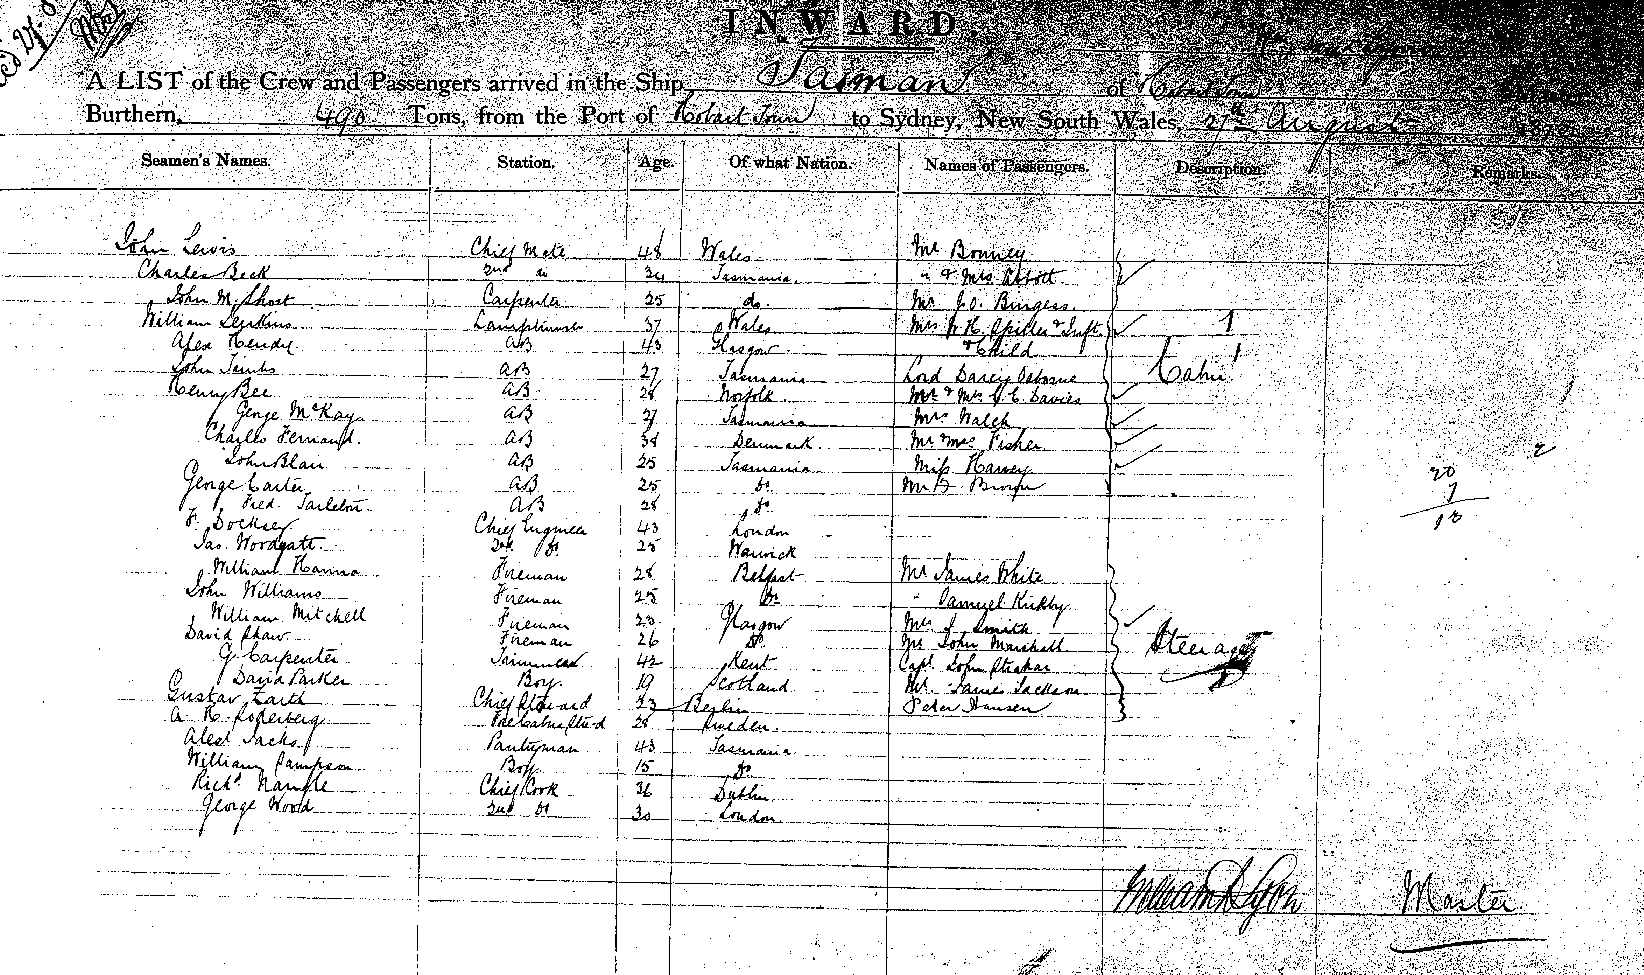 INWARD.
A LIST of the Crew and Passengers arrived in the Ship Tasman of Hobart Town
Burthern, 490 Tons, from the Port of Hobart Town to Sydney, New South Wales, 27th August
Seamen's Names. Station. Age. Of what Nation. Names of Passengers. Description. Remarks.
John Lewis Chief Mate 48 Wales Mr Bonney
Charles Beck 2nd do 34 Tasmania " & Mrs Abbott
John M. Short Carpenter 25 do. Mr J.O. Burgess
William Jenkins Lamptrimmer 37 Wales Mrs W H. Spiller & Inft 1
Alex Hendry AB 43 Glasgow & Child
John AB 27 Tasmania Lord Darcy Osborne Cabin
Henry Bee AB 28 Norfolk Mr & Mrs C E Davies
George McKay AB 27 Tasmania Mrs Walch
Charles Fernand. AB 38 Denmark Mr & Mrs Fisher
John Blair AB 25 Tasmania Miss Harvey
George Carter AB 25 do Mr Brown
Fred. Tarleton AB 28 do
F. Docksey Chief Engineer 43 London
Jas. Woodgatt 2nd do 25 Warwick
William Hanna Fireman 28 Belfast Mr James White
John Williams Fireman 25 do " Samuel Kirkby
William Mitchell Fireman 23 Glasgow Mrs Smith
David Shaw Fireman 26 do Mr John Marshall Steerage
G. Carpenter Trimmer 42 Kent Capt. John Strahan
David Parker Boy 19 Scotland Mr. James Jackson
Gustav Zarth Chief Steward 23 Berlin Peter Hansen
A. R. Soderberg Fore Cabin Stewd 28 Sweden
Alext Jacks Pantryman 43 Tasmania
William Sampson Boy 15 do
Richd Nangle Chief Cook 36 Dublin
George Wood 2nd do 30 London
20
7
13
William Lyon Master